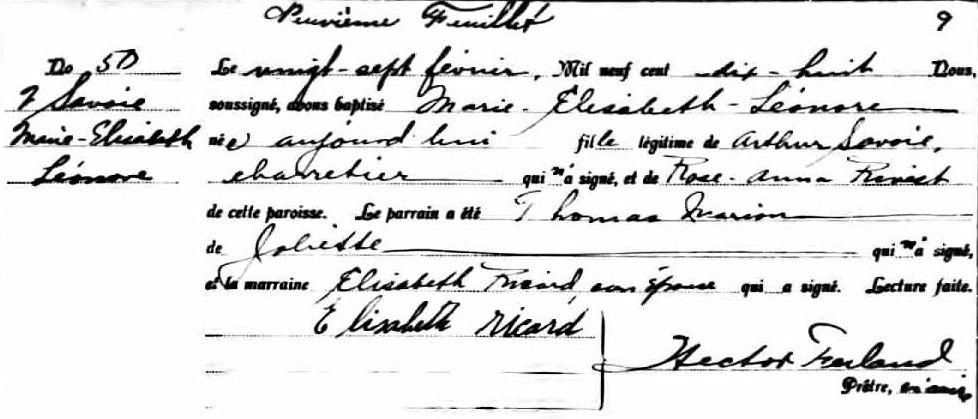 Neuvième Feuillet 9
No 50 Le vingt-sept février, Mil neuf cent dix-huit Nous,
Savoie soussigné, avons baptisé Marie-Elisabeth-Léonore
Marie-Elisabeth née aujourd'hui fille légitime de Arthur Savoie,
Léonore charretier qui n'a signé, et de Rose-Anna Rivest
de cette paroisse. Le parrain a été Thomas Marion
de Joliette qui n'a signé,
et la marraine Elisabeth Ricard, son épouse qui a signé. Lecture faite.
Elisabeth Ricard
Hector Ferland
Prêtre,